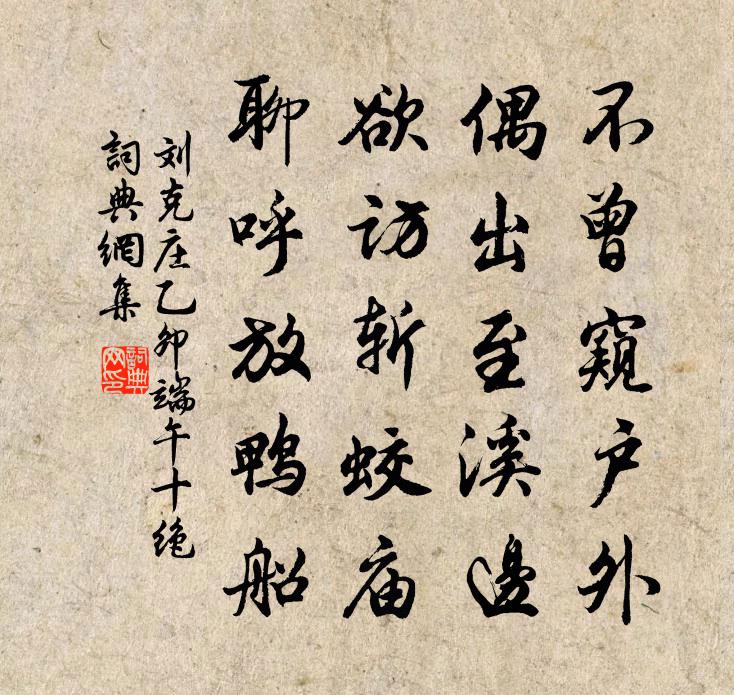 不曾窺户外
偶出至溪邊
欲访斩蛟庙
聊呼放鸭船
刘克庄乙卯端午十绝
詞典網集
詞典网印